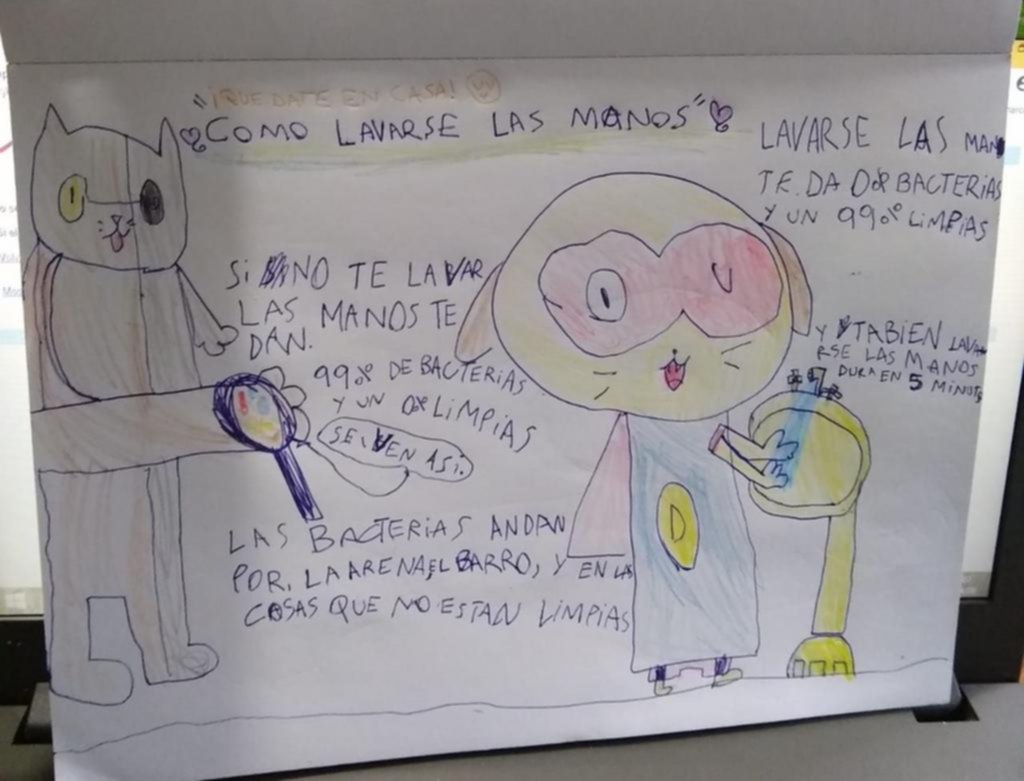 "¡QUEDATE EN CASA!
COMO LAVARSE LAS MANOS"
LAVARSE LAS MAN
TE DA 0% BACTERIAS
Y UN 99% LIMPIAS
SI NO TE LAVAR
LAS MANOS TE
DAN.
99% DE BACTERIAS
Y UN 0% LIMPIAS
SE VEN ASI.
Y TABIEN LAVA
RSE LAS MANOS
DURA EN 5 MINUTO
LAS BACTERIAS ANDAN
POR, LA ARENA, EL BARRO, Y EN LAS
COSAS QUE NO ESTAN LIMPIAS
D